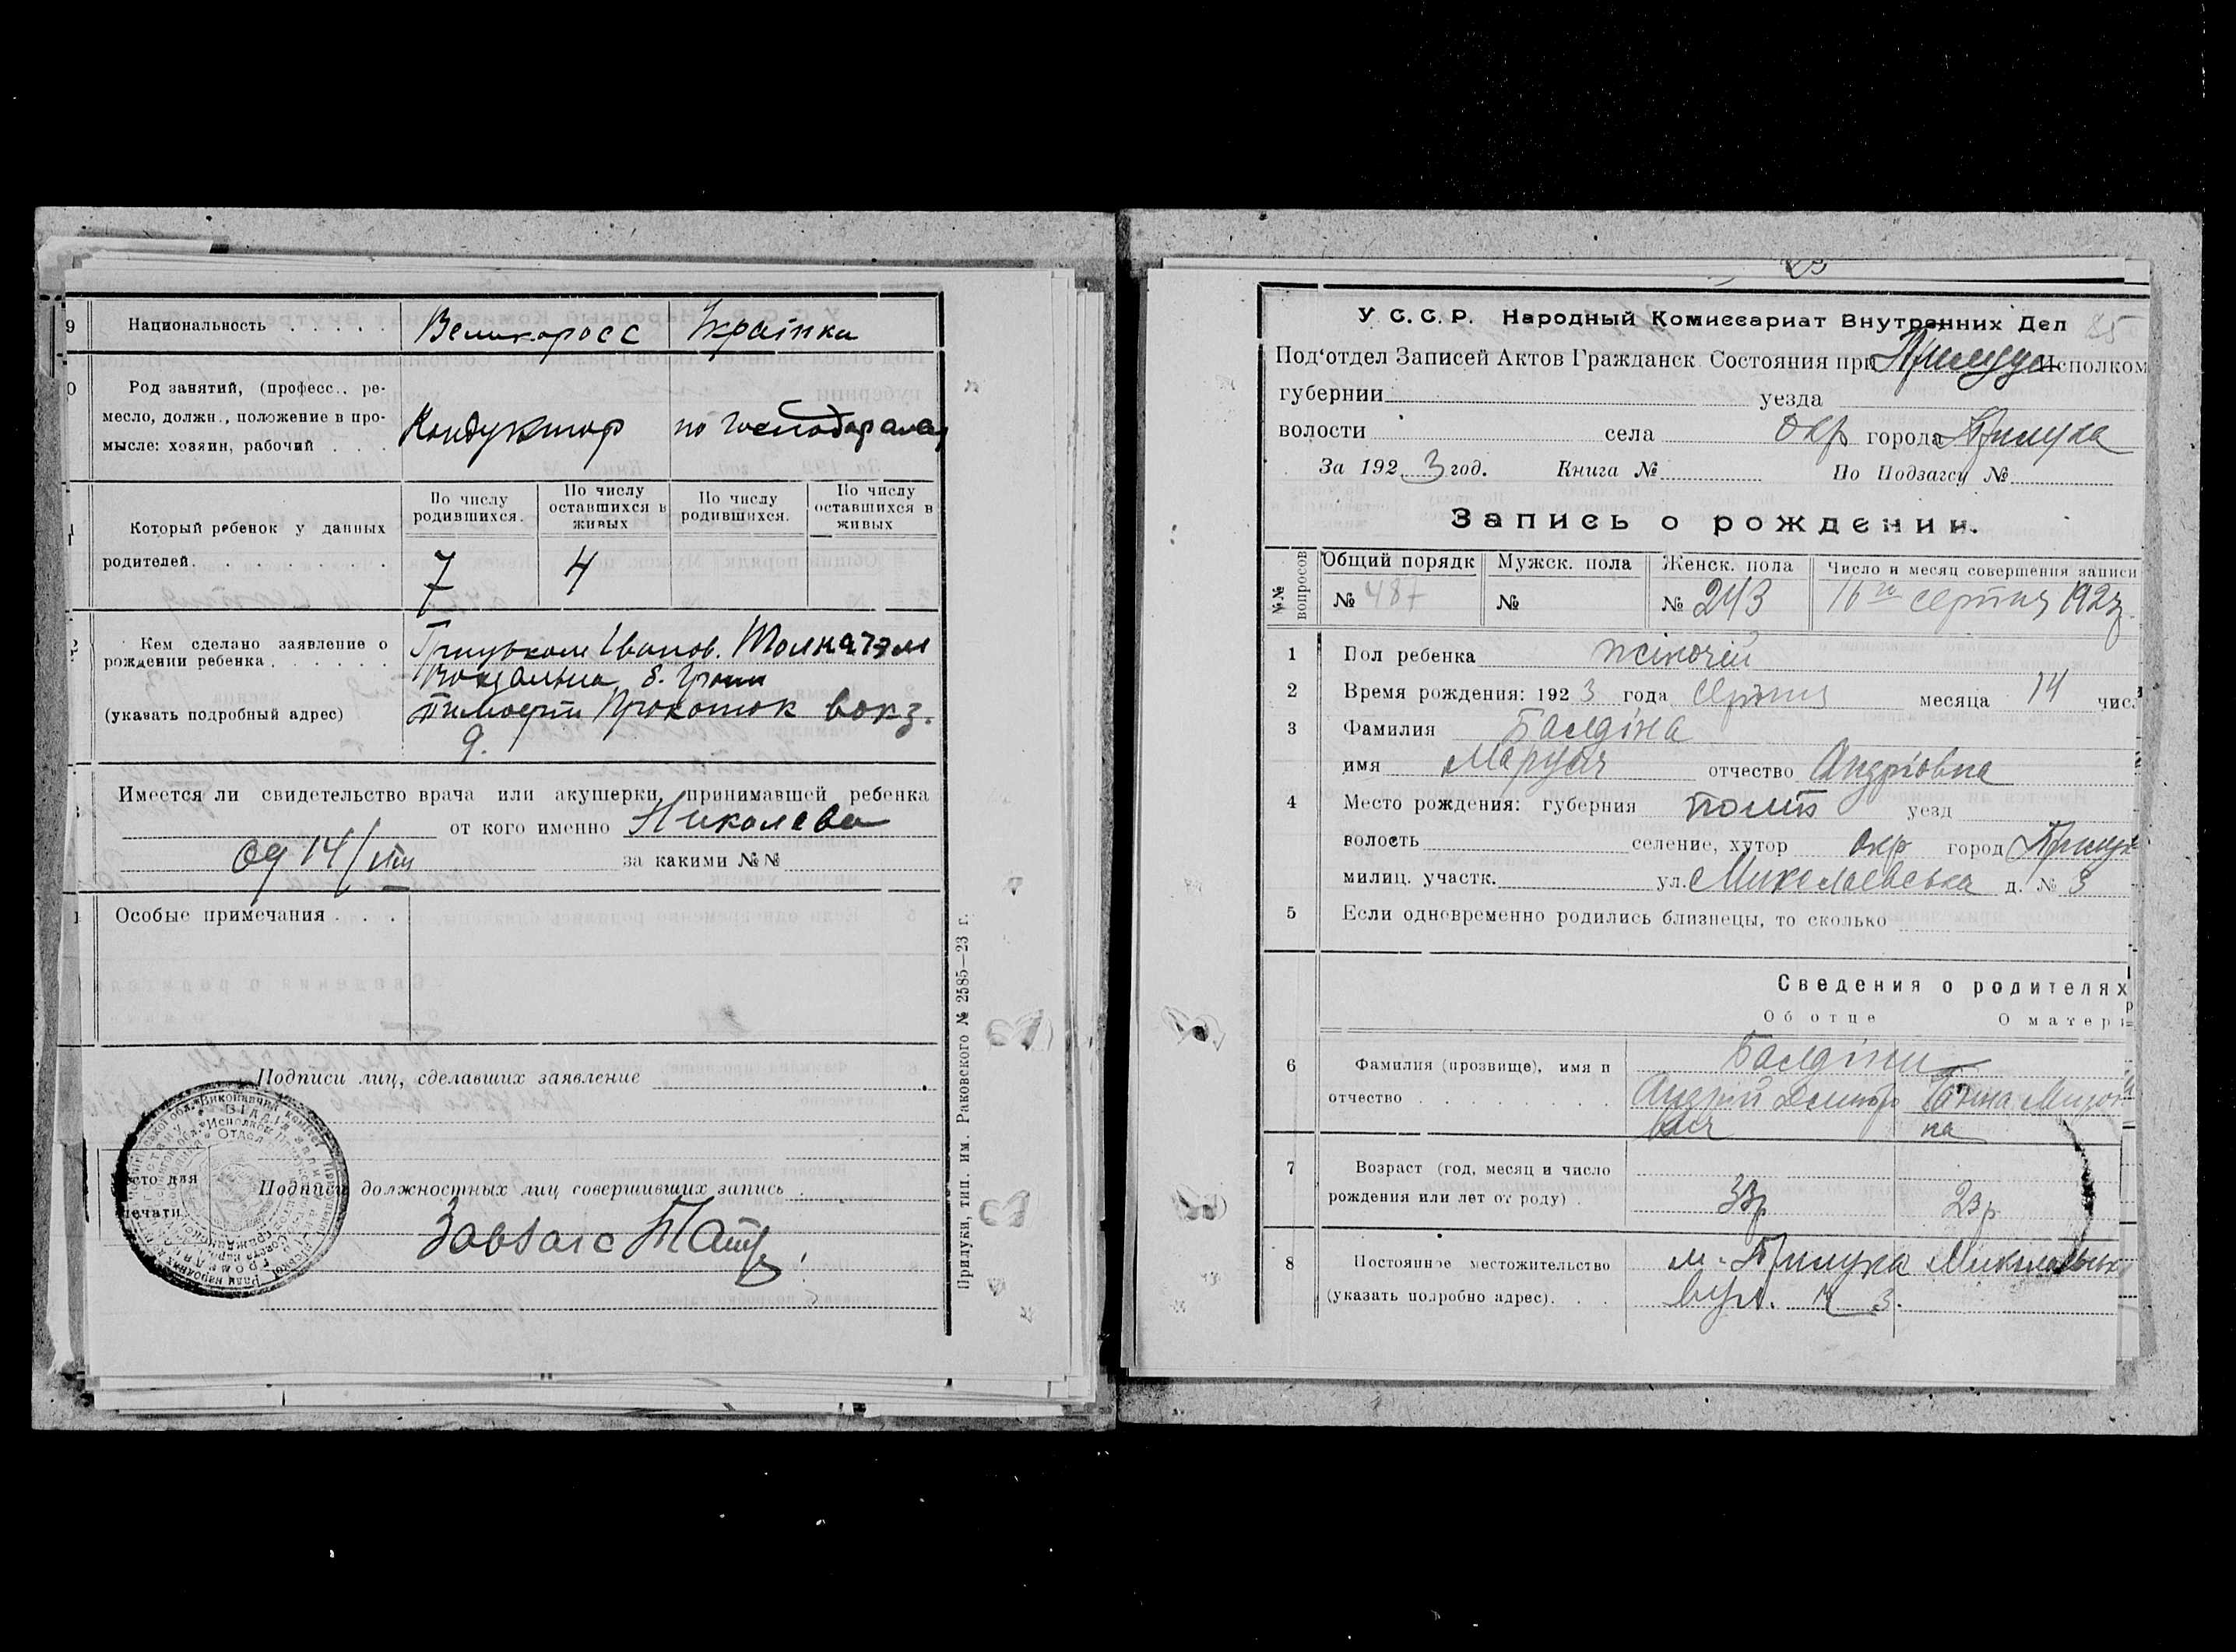 9 Национальность Великоросс Українка
Род занятий, (професс., ре-
месло, должн., положение в про-
мысле: хозяин, рабочий
Кондуктор по господар
Который ребенок у данных
родителей
По числу родившихся.
По числу оставшихся в живых
По числу родившихся.
По числу оставшихся в живых
7 4
Кем сделано заявление о
рождении ребенка
(указать подробный адрес)
Иванов. Толкачем
8.
Прокопюк вокз.
9.
Имеется ли свидетельство врача или акушерки, принимавшей ребенка
от кого именно Николаева
од 14/VIII за какими №№
Особые примечания
Подписи лиц, сделавших заявление
Место для
печати
Подписи должностных лиц совершивших запись
Завзагс
Прилуки, тип. им. Раковского № 2585—23 г.
85
У С. С. Р. Народный Комиссариат Внутренних Дел
Под‘отдел Записей Актов Гражданск Состояния при Прилуцк исполком
губернии уезда
волости села окр города Прилука
За 1923 год. Книга № По Подзагсу №
Запись о рождении.
№№ вопросов
Общий порядк Мужск. пола Женск. пола Число и месяц совершения записи
№ 487 № № 243 16го серпня 1923
1 Пол ребенка жіночій
2 Время рождения: 1923 года серпня месяца 14 числ
3 Фамилия Балдіна
имя Маруся отчество Андріовна
4 Место рождения: губерния Полт уезд
волость селение, хутор окр город Прилук
милиц. участк. ул. Миколаевська д. № 3
5 Если одновременно родились близнецы, то сколько
Сведения о родителях
Об отце О матери
6 Фамилия (прозвище), имя и
отчество
Балдіни
Андрій Дмитро
вич
Ганна
на
7 Возраст (год, месяц и число
рождения или лет от роду)
33р 23р
8 Постоянное местожительство
(указать подробно адрес).
м. Прилука Миколаевськ
вул. № 3.